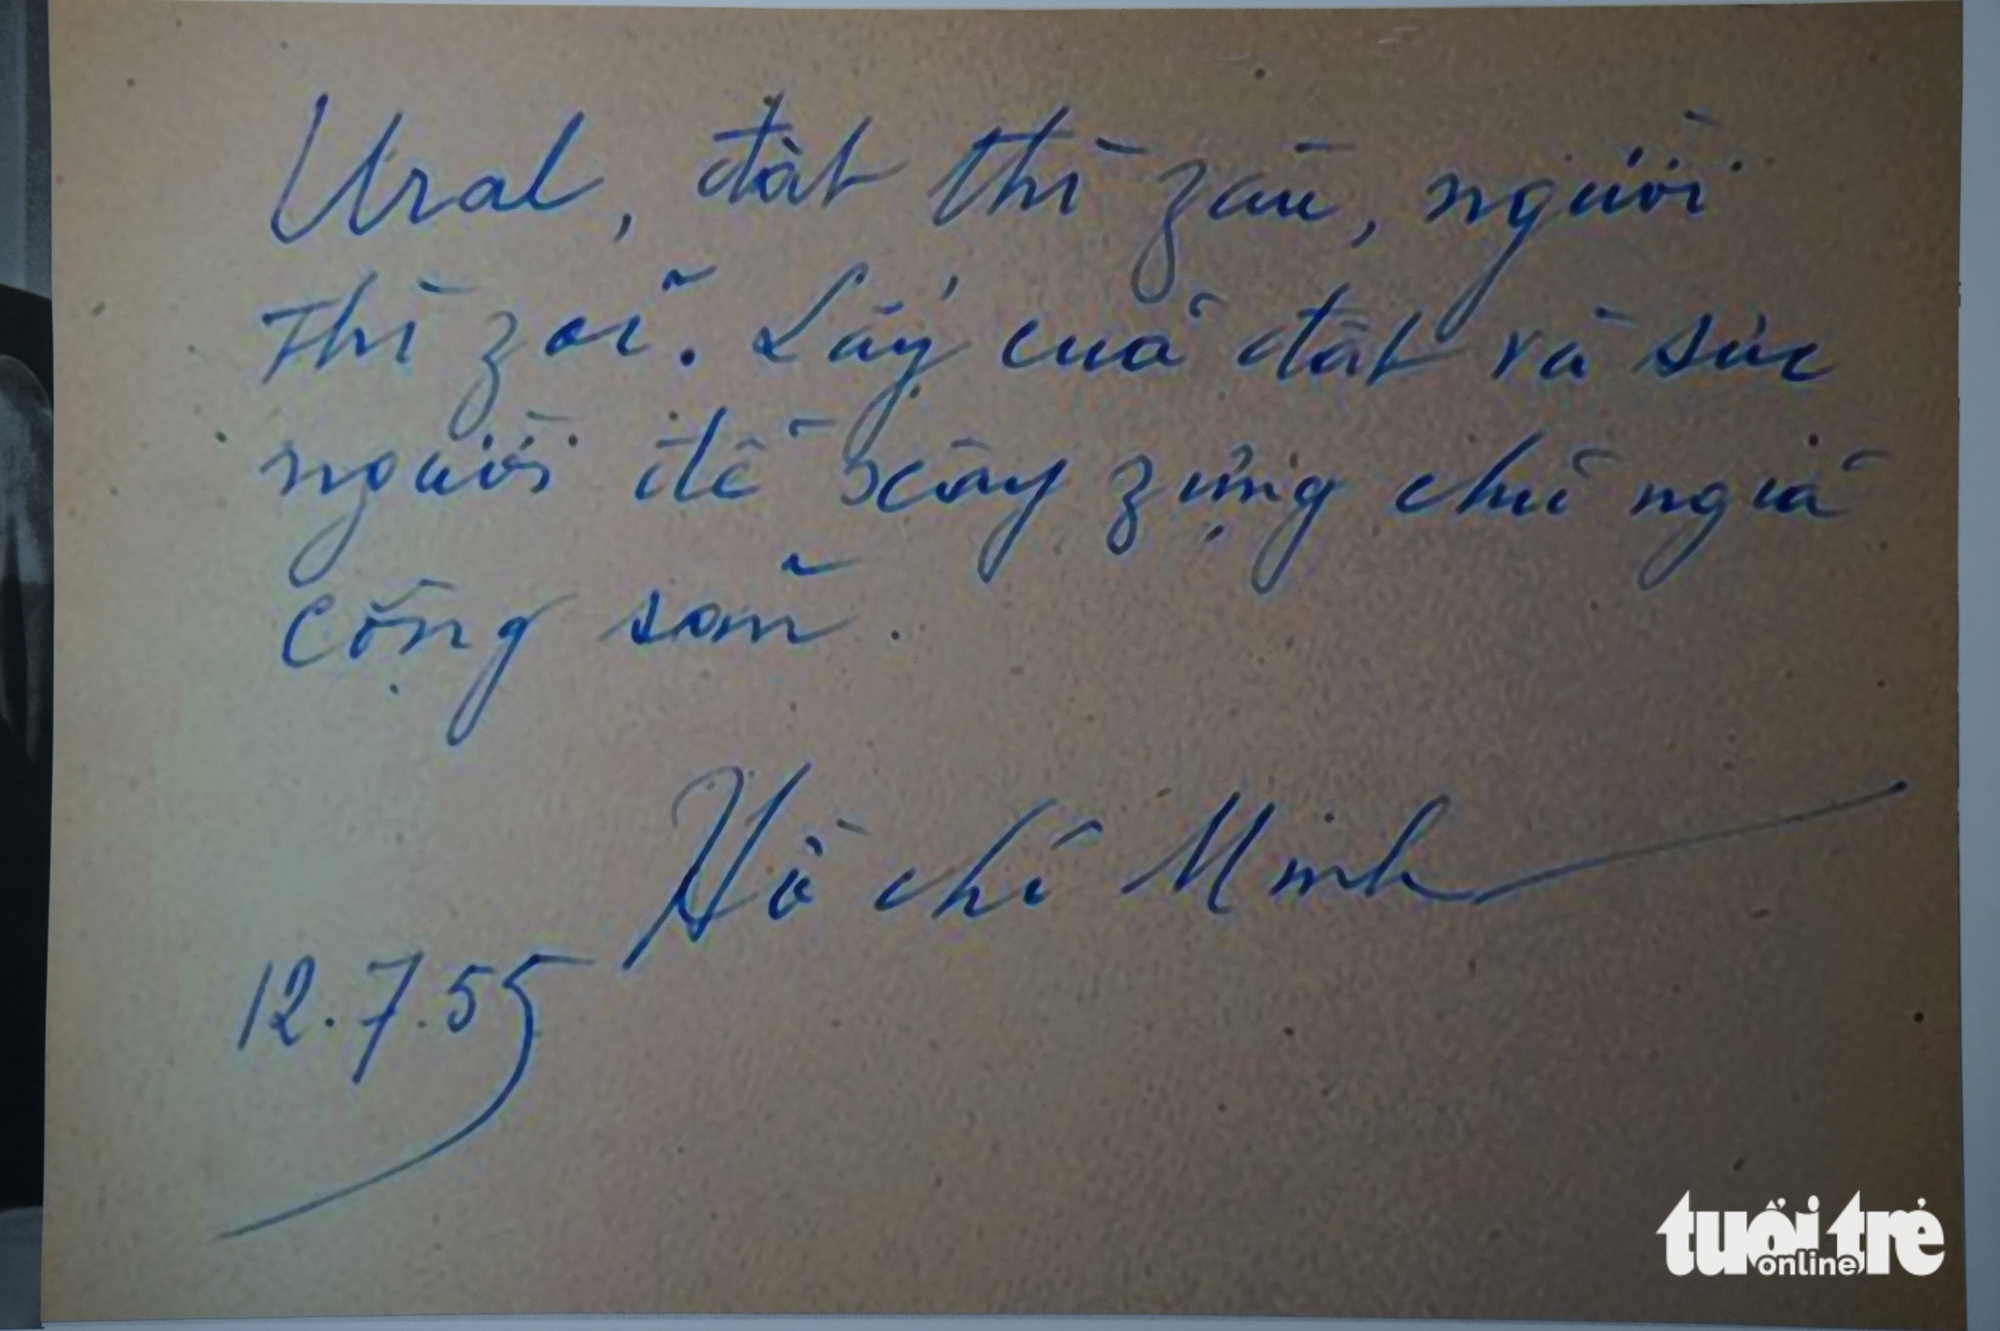 Ural, đất thì zàu, người
thì zỏi. Lấy của đất và sức
người để xây zựng chủ nghĩa
cộng sản.
Hồ chí Minh
12.7.55
tuổi trẻ
online